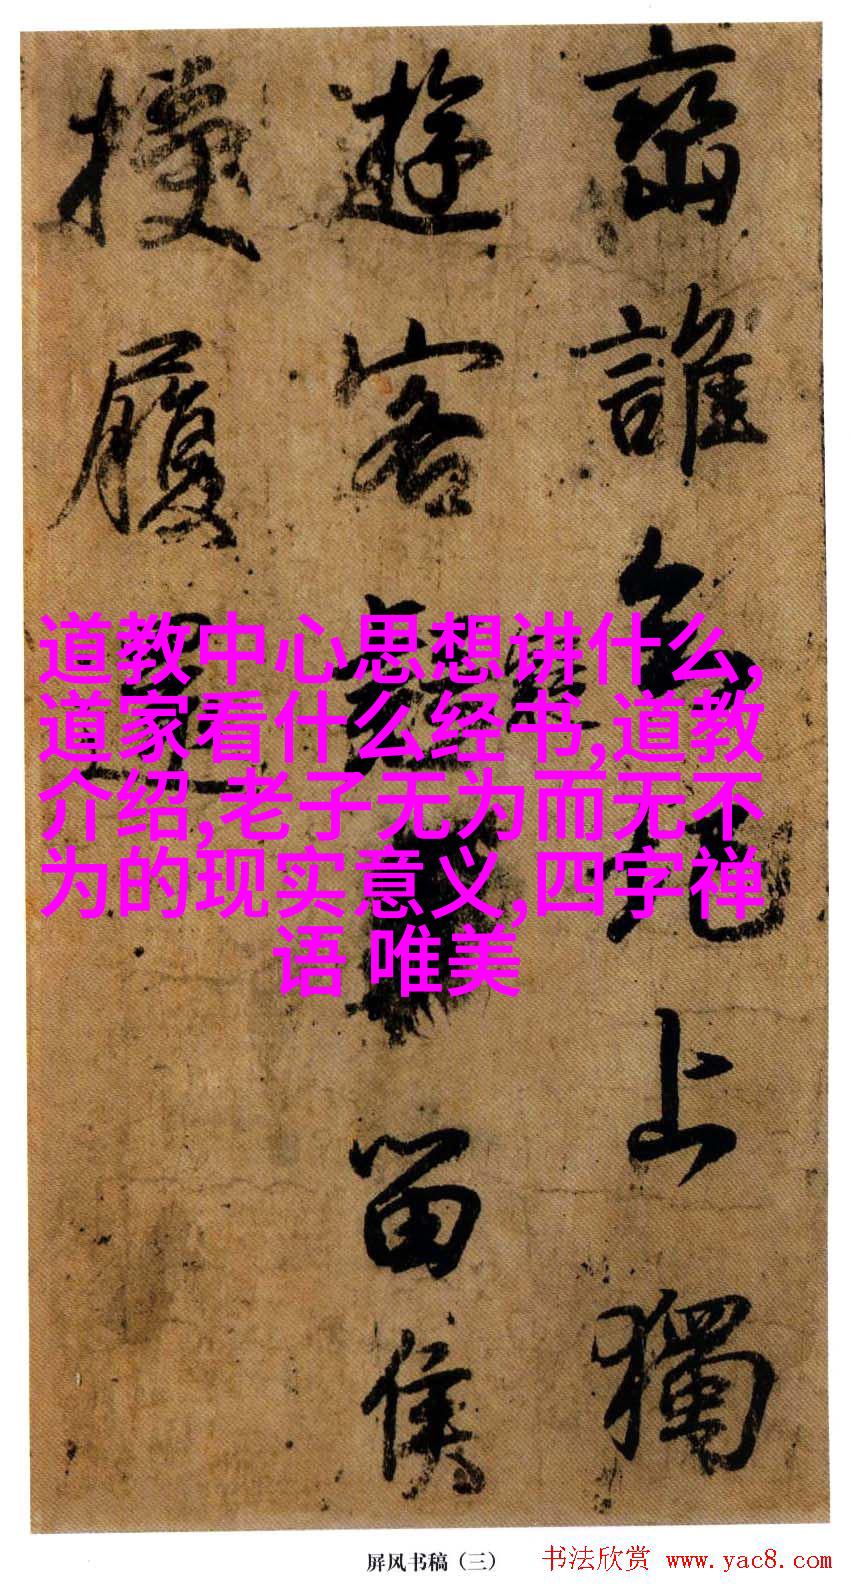 峦誰上獨
遊客留侯
履
道教中心思想讲什么,
道家看什么经书,道教
介绍,老子无为而无不
为的现实意义,四字禅
语 唯美
屏风书稿（三）
书法欣赏 www.yac8.com